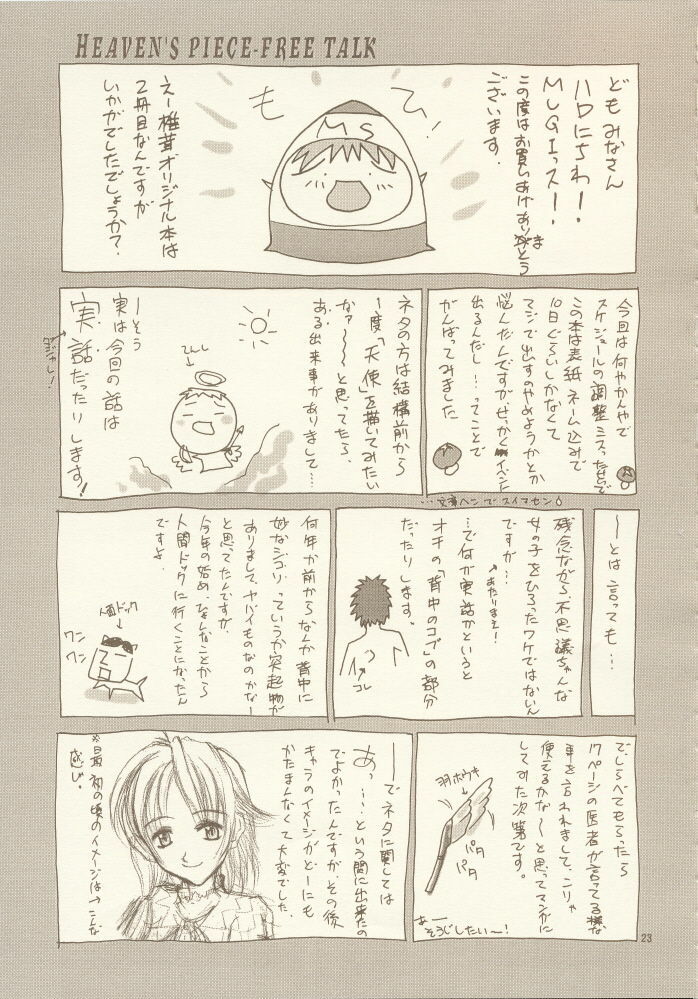 HEAVEN'S PIECE-FREE TALK
どもみなさん
ハロにちわー!
MUGIっスー!
この度はお買いあげありがとう
ま
ございます。
ひ!
も
MS
えー椎茸オリジナル本は
2冊目なんですが
いかがでしたでしょうか?
今回は何やかんやで
スケジュールの調整ミスったせいで
この本は表紙、ネーム込みで
10日ぐらいしかなくて
マジで出すのやめようかとか
悩んだんですが、せっかくイベント
出るんだし…ってことで
がんばってみました
…文章ヘンでスイマセン
ネタの方は結構前から
1度「天使」を描いてみたい
なァ〜〜と思ってたら、
ある出来事がありまして…
てんし
ーそう
実は今回の話は
実話だったりします!
ダジャレ!
ーとは言っても…
残念ながら、不思議ちゃんな
女の子をひろったワケではないん
ですが…
↑あたりまえ!
…で何が実話かというと
オチの「背中のコブ」の部分
だったりします。
コレ
何年か前からなんか背中に
妙なシコリっていうか突起物が
ありまして、ヤバイものなのかなー
と思ってたんですが、
今年の始め、ひょんなことから
人間ドックに行くことになったん
ですよ。
人面ドック
ワン
ワン
でしらべてもらったら
17ページの医者が言ってる様な
事を言われまして、こりゃ
使てるかな〜と思ってマンガに
してみた次第です。
羽ホウキ
パタ
パタ
あー
そうじしたいー!
ーでネタに関しては
あっ…という間に出来たの
でよかったんですが、その後
キャラのイメージがどーにも
かたまんなくて大変でした。
※最初の頃のイメージは→こんな
感じ。
23